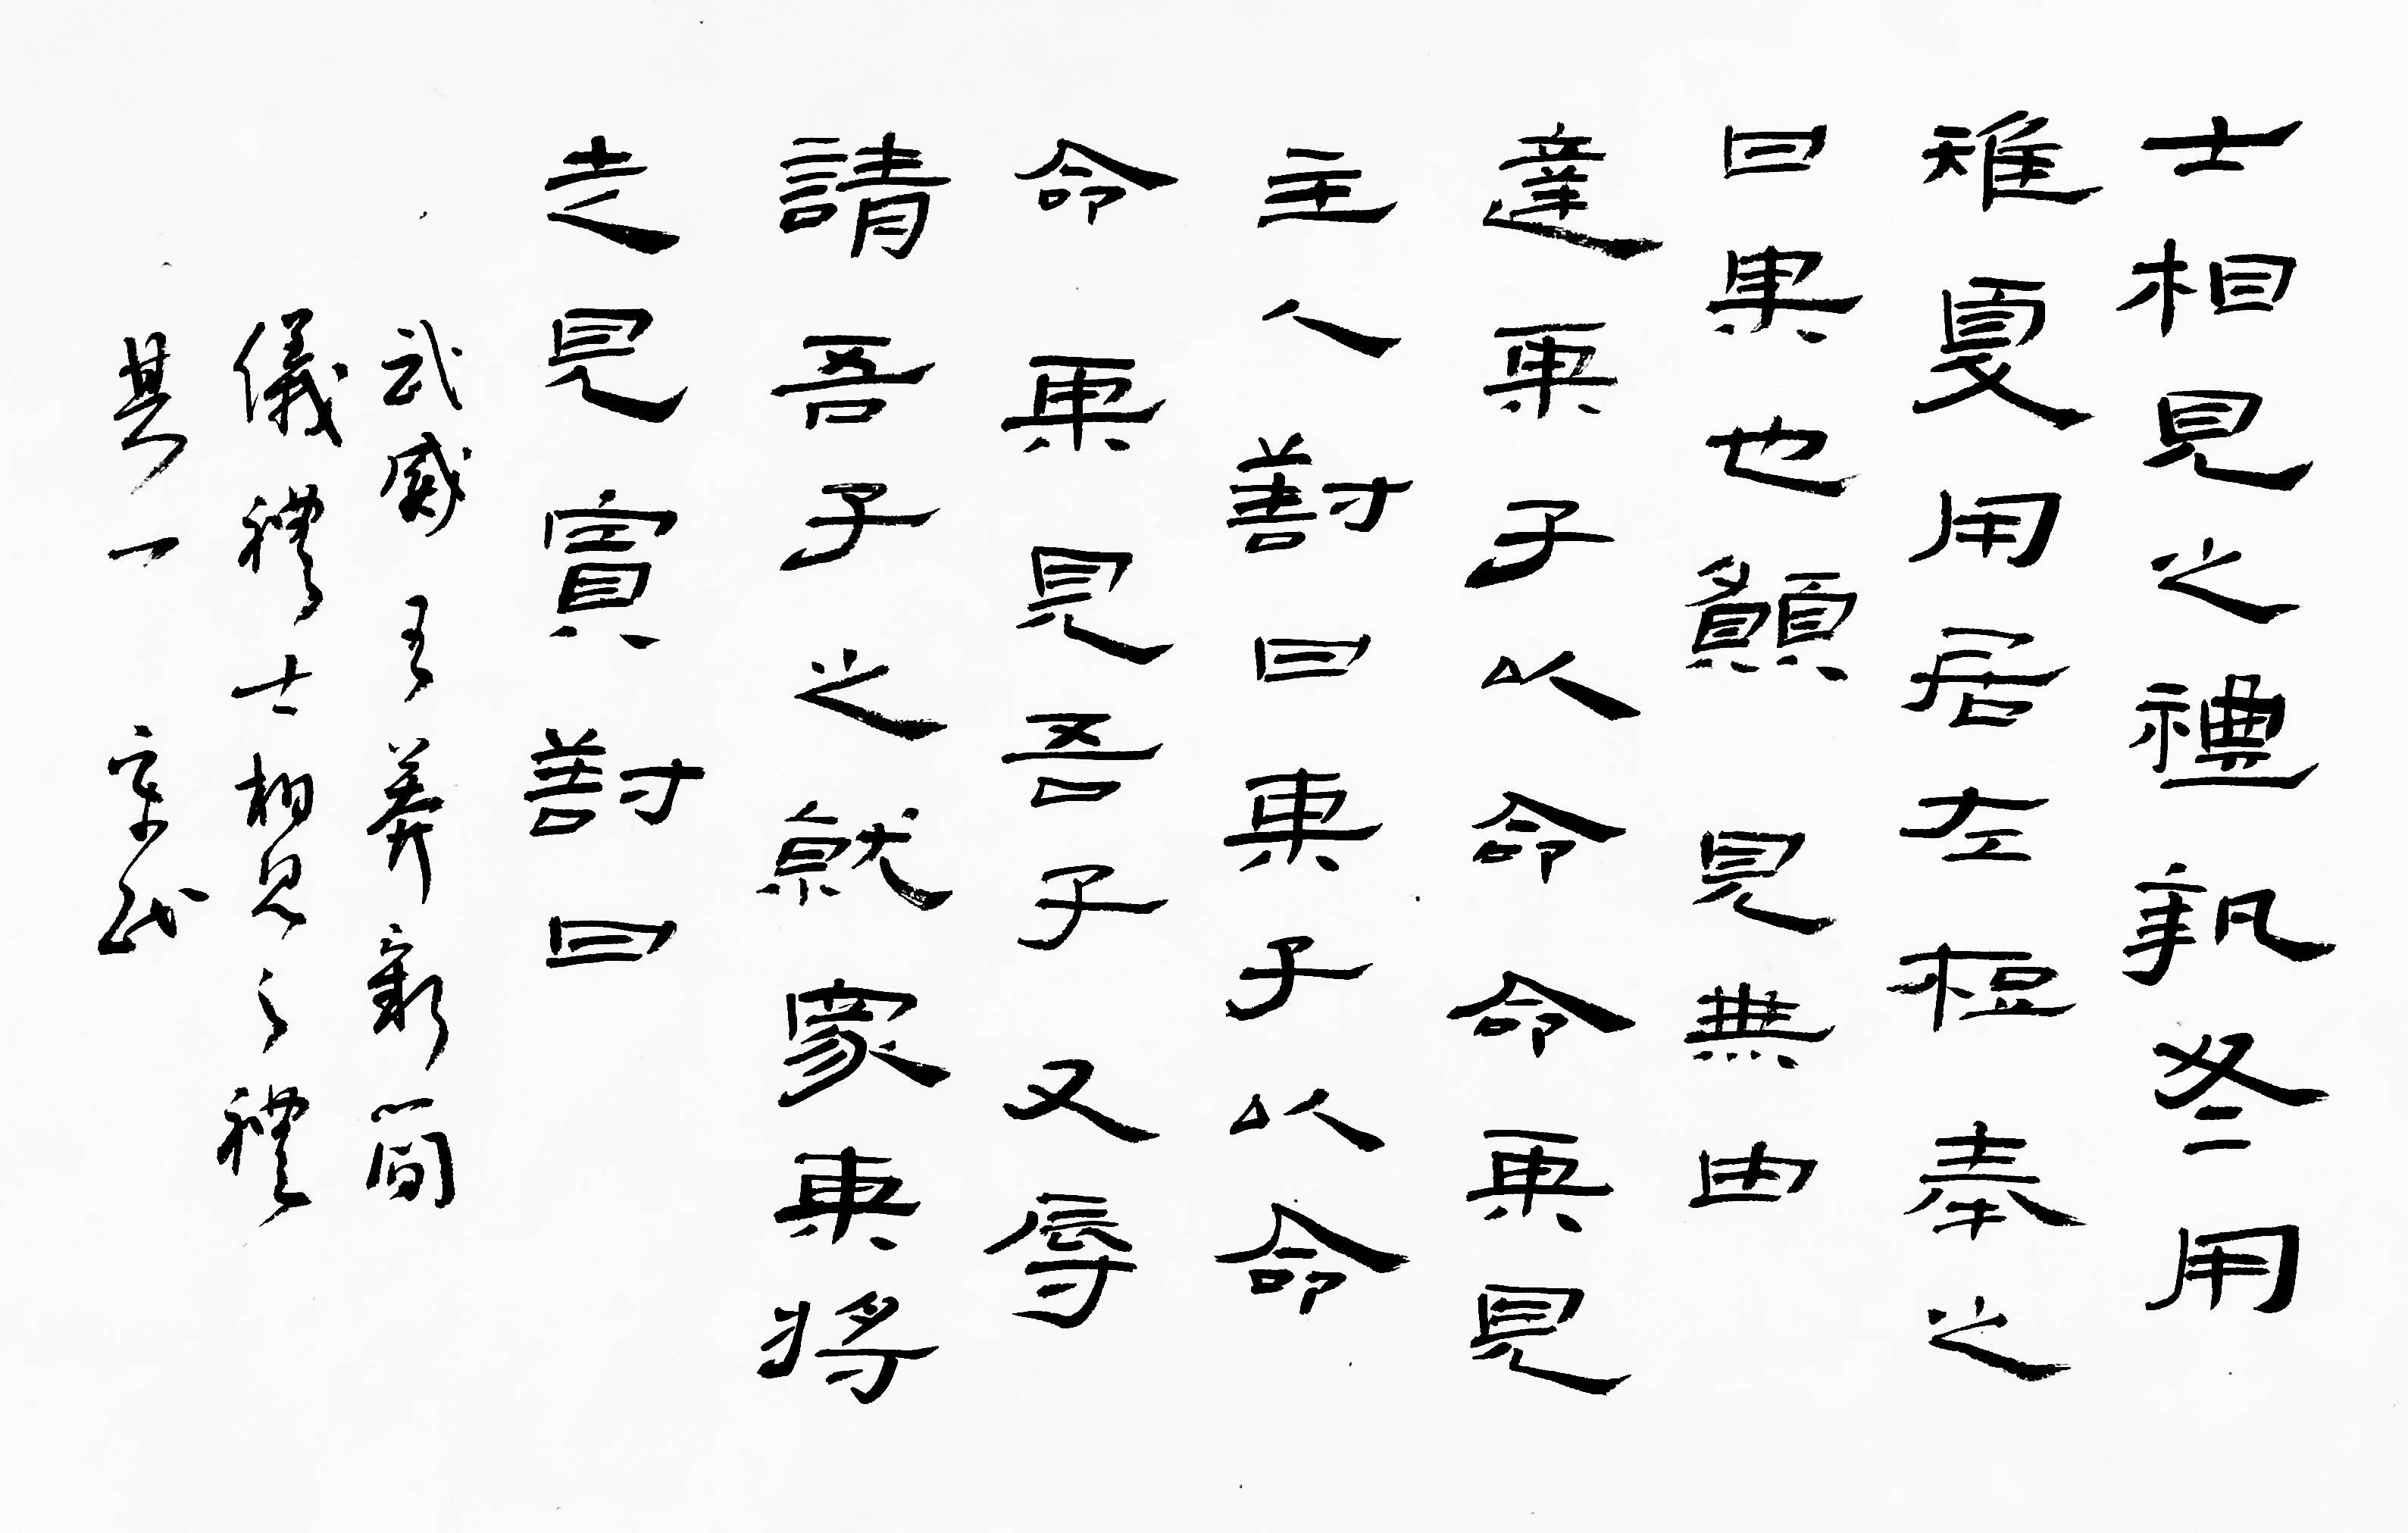 士相見之禮執冬用
雉夏用居左梪奉之
曰某也願見無由
達某子以命命某見
主人對曰某子以命
命某見吾子又辱
請吾子之就家某將
走見賓對曰
武威王莽新簡
儀禮士相見之禮
其一